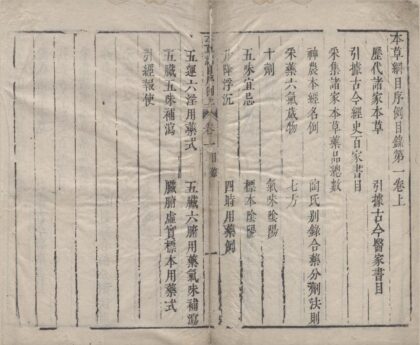 本草綱目序例目錄第一卷上
歷代諸家本草 引據古今醫家書目
引據古今經史百家書目
采集諸家本草藥品總數
神農本經名例 陶氏別錄合藥分劑法則
采藥六氣歲物 七方
十劑 氣味陰陽
五味宜忌 標本陰陽
升降浮沉 四時用藥例
五運六淫用藥式 五臟六腑用藥氣味補瀉
五臟五味補瀉 臟腑虛實標本用藥式
引經報使
卷一